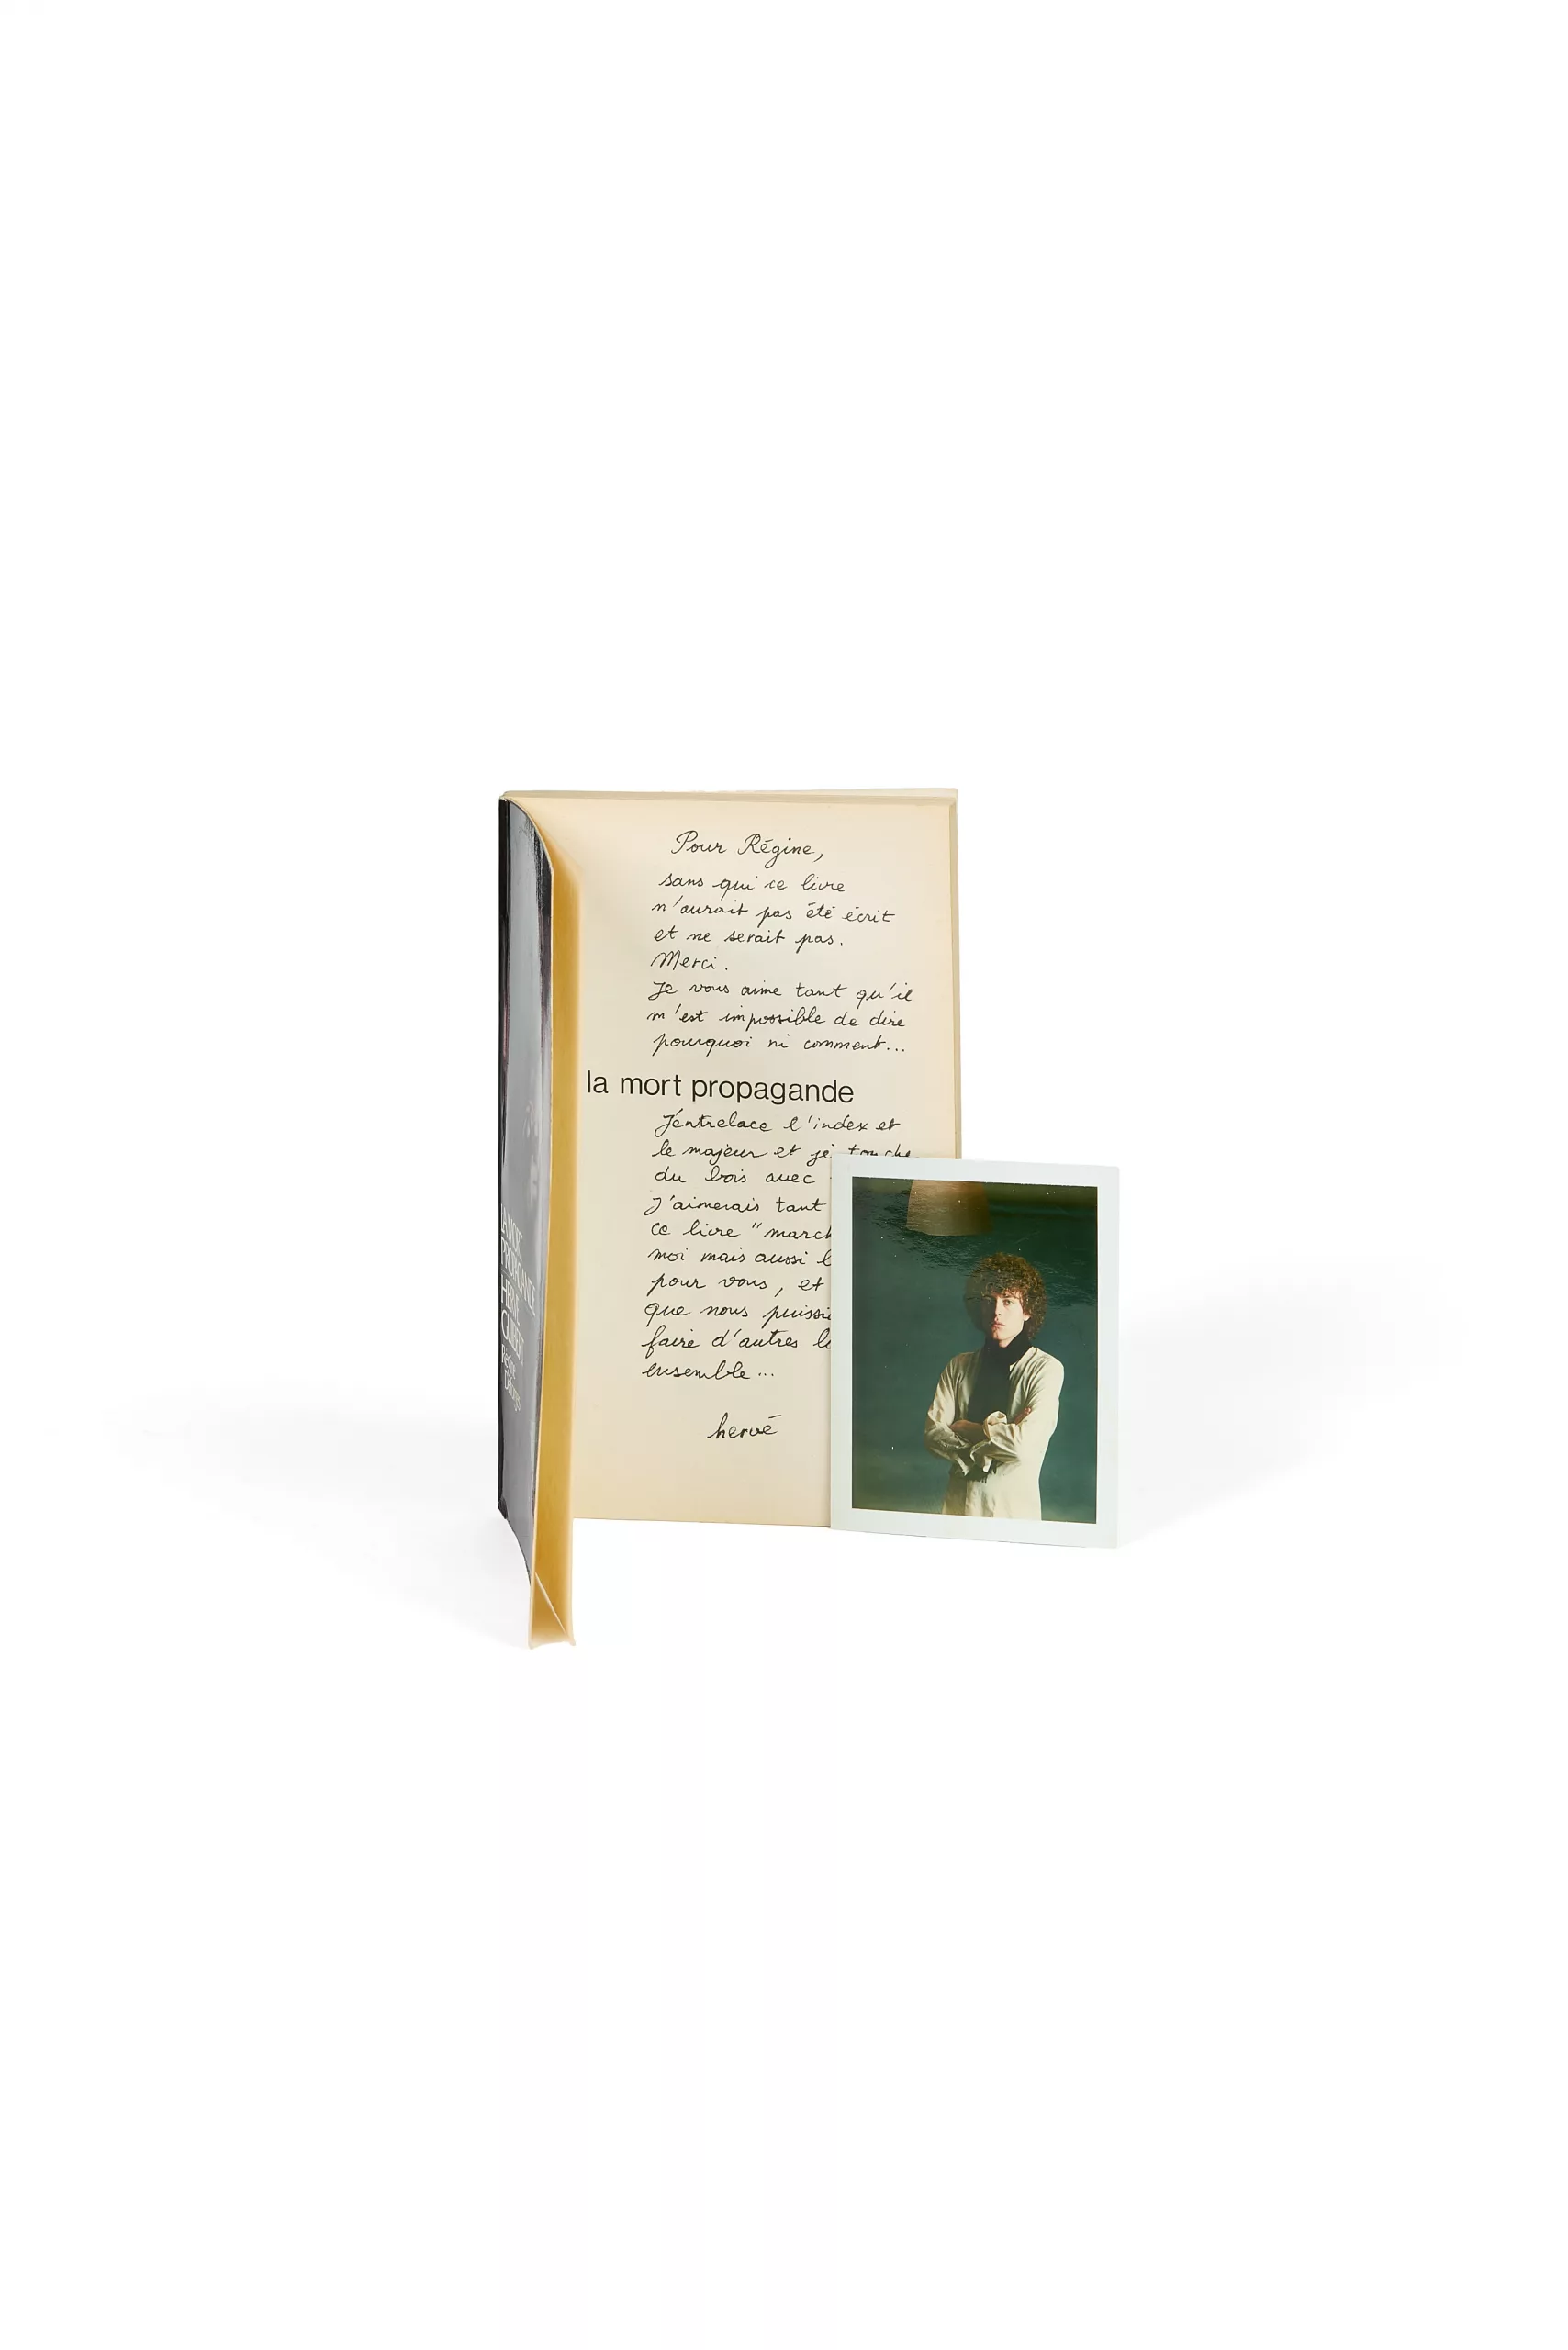 Pour Régine,
sans qui ce livre
n'aurait pas été écrit
et ne serait pas.
Merci.
Je vous aime tant qu'il
m'est impossible de dire
pourquoi ni comment...
la mort propagande
J'entrelace l'index et
le majeur et je touche
du bois avec
J'aimerais tant
ce livre "march
moi mais aussi
pour vous, et
que nous puissi
faire d'autres
ensemble...
hervé
LA MORT
PROPAGANDE
HERVÉ
GUIBERT
Régine
Deforges